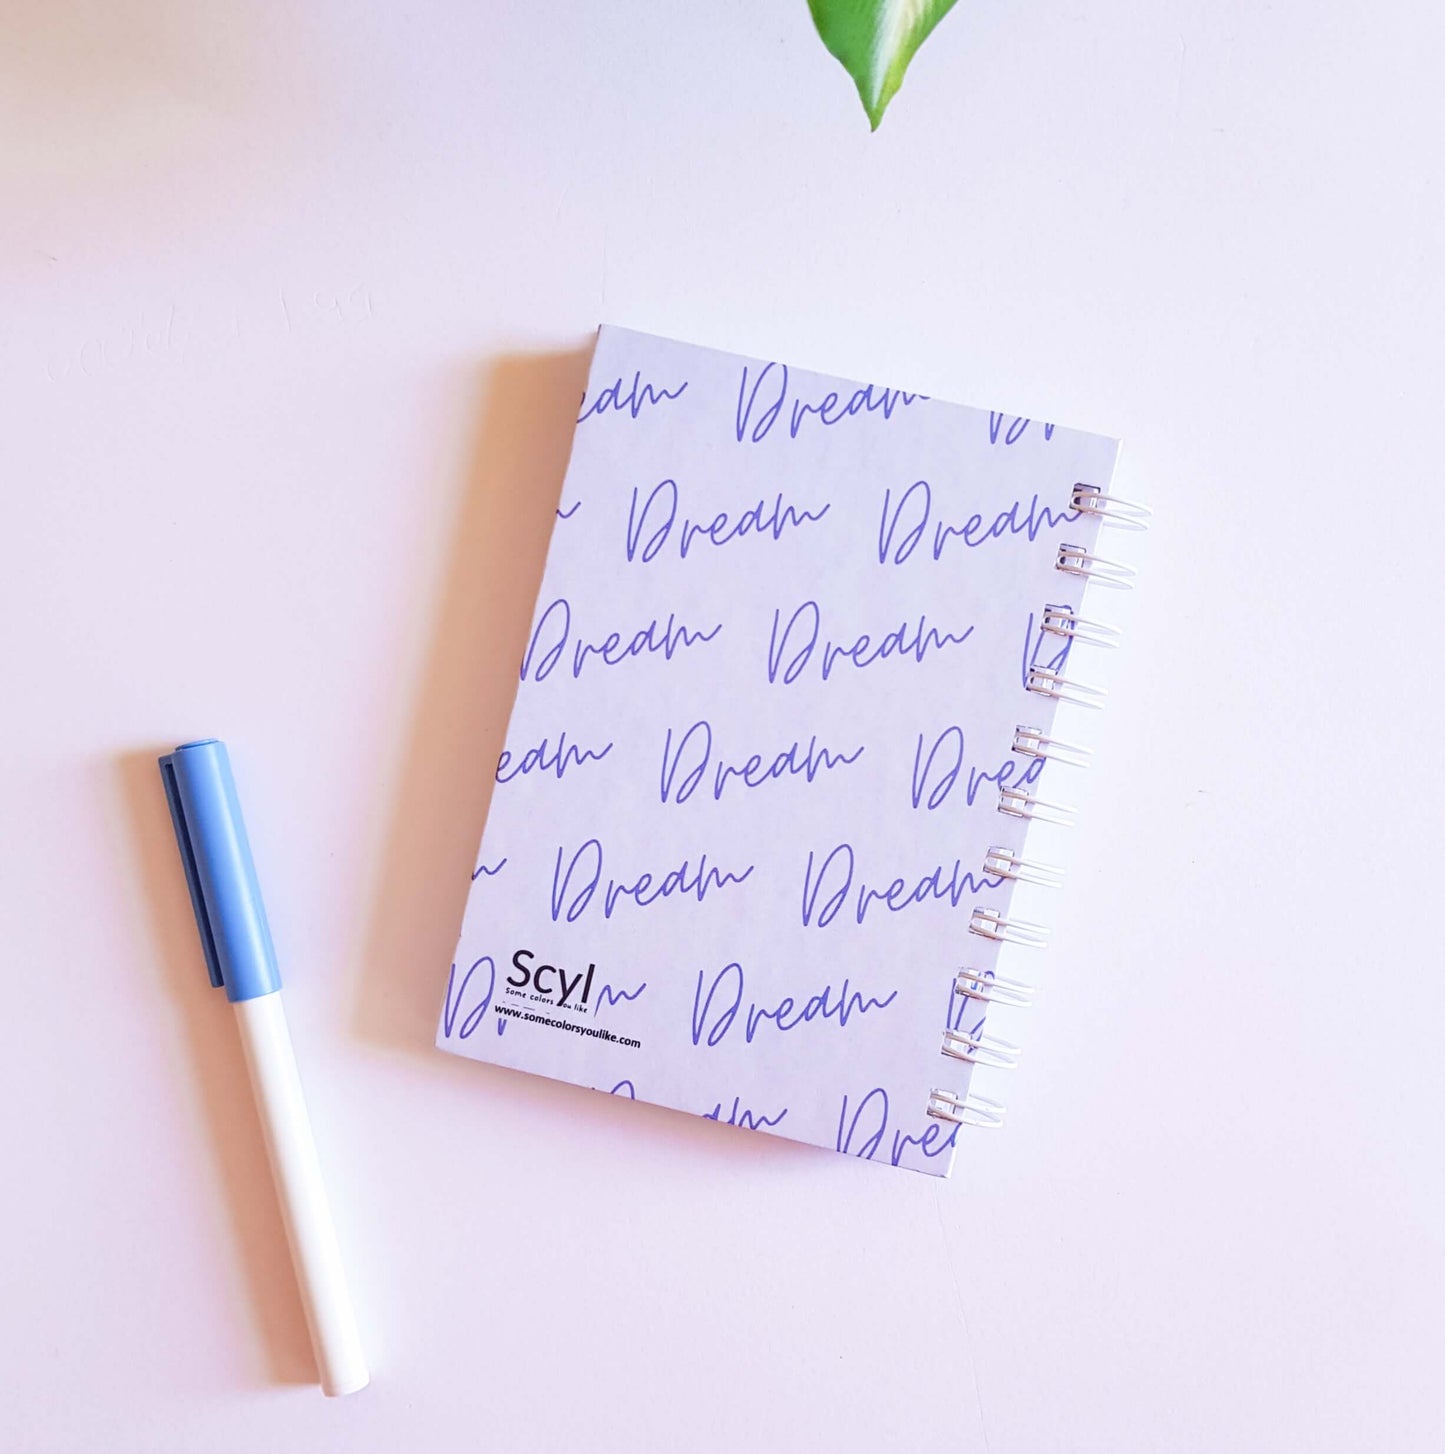 eam Dream Dr
m Dream Dream
Dream Dream D
eam Dream Drea
m Dream Dream
D m Dream
Scyl
Some colors you like
www.somecolorsyoulike.com
D am Drea